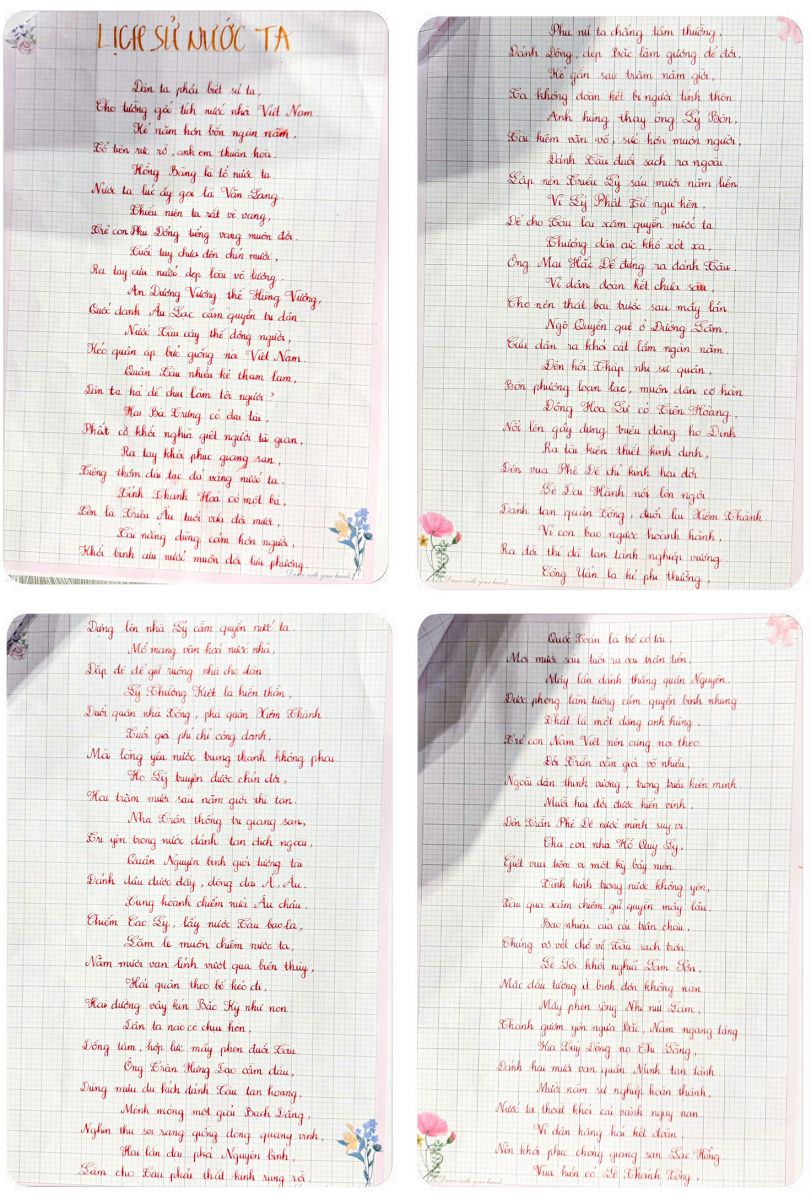 LỊCH SỬ NƯỚC TA
Dân ta phải biết sử ta,
Cho tường gốc tích nước nhà Việt Nam.
Kể năm hơn bốn ngàn năm,
Tổ tiên rực rỡ, anh em thuận hoà.
Hồng Bàng là tổ nước ta.
Nước ta lúc ấy gọi là Văn Lang.
Thiếu niên ta rất vẻ vang,
Trẻ con Phù Đổng tiếng vang muôn đời.
Tuổi tuy chưa đến chín mười,
Ra tay cứu nước dẹp loài vô lương.
An Dương Vương thế Hùng Vương,
Quốc danh Âu Lạc cầm quyền trị dân.
Nước Tàu cậy thế đông người,
Kéo quân áp bức giống nòi Việt Nam.
Quân Tàu nhiều kẻ tham lam,
Dân ta há dễ chịu làm tôi người?
Hai Bà Trưng có đại tài,
Phất cờ khởi nghĩa giết người tà gian,
Ra tay khôi phục giang san,
Tiếng thơm dài tạc đá vàng nước ta.
Tỉnh Thanh Hoá có một bà,
Tên là Triệu Ẩu tuổi vừa đôi mươi,
Tài năng dũng cảm hơn người,
Khởi binh cứu nước muôn đời lưu phương.
Dance with your hands
Phụ nữ ta chẳng tầm thường,
Đánh Đông, dẹp Bắc làm gương để đời.
Kể gần sáu trăm năm giời,
Ta không đoàn kết bị người tính thôn.
Anh hùng thay ông Lý Bôn,
Tài kiêm văn võ, sức hơn muôn người,
Đánh Tàu đuổi sạch ra ngoài.
Lập nên Triều Lý sáu mươi năm liền.
Vì Lý Phật Tử ngu hèn,
Để cho Tàu lại xâm quyền nước ta.
Thương dân cực khổ xót xa,
Ông Mai Hắc Đế đứng ra đánh Tàu.
Vì dân đoàn kết chưa sâu,
Cho nên thất bại trước sau mấy lần.
Ngô Quyền quê ở Đường Lâm,
Cứu dân ra khỏi cát lầm ngàn năm.
Đến hồi Thập nhị sứ quân,
Bốn phương loạn lạc, muôn dân cơ hàn.
Động Hoa Lư có Tiên Hoàng,
Nổi lên gây dựng triều đàng họ Đinh.
Ra tài kiến thiết kinh dinh,
Đến vua Phế Đế chỉ kinh hai đời.
Lê Đại Hành nối lên ngôi.
Đánh tan quân Tống, đuổi lui Xiêm Thành.
Vì con bạo ngược hoành hành,
Ra đời thì đã tan tành nghiệp vương.
Công Uẩn là kẻ phi thường,
Dance with your hands
Dựng lên nhà Lý cầm quyền nước ta.
Mở mang văn hoá nước nhà,
Đắp đê để giữ ruộng nhà cho dân.
Lý Thường Kiệt là hiền thần,
Đuổi quân nhà Tống, phá quân Xiêm Thành.
Tuổi già phỉ chí công danh,
Mà lòng yêu nước trung thành không phai.
Họ Lý truyền được chín đời,
Hai trăm mười sáu năm giời thì tan.
Nhà Trần thống trị giang san,
Trị yên trong nước đánh tan địch ngoài,
Quân Nguyên binh giỏi tướng tài:
Đánh đâu được đấy, dông dài Á, Âu,
Tung hoành chiếm nửa Âu châu,
Chiếm Cao Ly, lấy nước Tàu bao la,
Lăm le muốn chiếm nước ta,
Năm mươi vạn lính vượt qua biên thuỳ,
Hải quân theo bể kéo đi,
Hai đường vây kín Bắc Kỳ như nen.
Dân ta nào có chịu hèn,
Đồng tâm, hợp lực mấy phen đuổi Tàu.
Ông Trần Hưng Đạo cầm đầu,
Dùng mưu du kích đánh Tàu tan hoang,
Mênh mông một giải Bạch Đằng,
Nghìn thu soi rạng giống dòng quang vinh,
Hai lần đại phá Nguyên binh,
Làm cho Tàu phải thất kinh rụng rời.
Quốc Toản là trẻ có tài,
Mới mười sáu tuổi ra oai trận tiền,
Mấy lần đánh thắng quân Nguyên.
Được phong làm tướng cầm quyền binh nhung.
Thật là một đứng anh hùng,
Trẻ con Nam Việt nên cùng noi theo.
Đời Trần văn giỏi võ nhiều,
Ngoài dân thịnh vượng, trong triều hiền minh.
Mười hai đời được hiển vinh,
Đến Trần Phế Đế nước mình suy vi.
Cha con nhà Hồ Quý Ly,
Giết vua tiếm vị một kỳ bảy niên.
Tình hình trong nước không yên,
Tàu qua xâm chiếm giữ quyền mấy lâu.
Bao nhiêu của cải trân châu,
Chúng vơ vét chở về Tàu sạch trơn.
Lê Lợi khởi nghĩa Lam Sơn,
Mặc dầu tướng ít binh đơn không nàn.
Mấy phen sông Nhị núi Lam,
Thanh gươm yên ngựa Bắc, Nam ngang tàng.
Kìa Tuý Động nọ Chi Lăng,
Đánh hai mươi vạn quân Minh tan tành.
Mười năm sự nghiệp hoàn thành,
Nước ta thoát khỏi cái vành nguy nan.
Vì dân hăng hái kết đoàn,
Nên khôi phục chóng giang san Lạc Hồng
Vua hiền có Lê Thánh Tông,
Dance with your hands